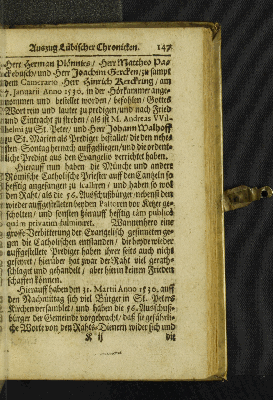 Auszug Lübischer Chronicken. 147
Herr Herman Plönnies / Herr Mattheo Pa-
ckebusch / und Herr Joachim Gercken / zu sampt
dem Camerario Herr Hinrich Kerckring / am
7. Januarii Anno 1530. in der Hörkammer ange-
nommen und bestellet worden / befohlen / Gottes
Wort rein und lauter zu predigen / und nach Fried
und Eintracht zu streben / als ist M. Andreas Wil-
helmi zu St. Peter / und Herr Johann Walhoff
zu St. Marien als Prediger bestallet / die den nehe-
sten Sontag hernach auffgestiegen / und die ordent-
liche Predigt aus den Evangelio verrichtet haben.
Hierauff haben die Münche und andere
Römische Catholische Priester auff den Cantzeln so
hefftig angefangen zu / und haben so wol
den Raht / als die 56. Ausschußbürger nebenst den
wieder auffgestelleten beyden Pastoren vor Ketzer ge-
scholten / und sonsten hierauff hefftig tàm publicè
quàm privatim fulminiret. Wannenhero eine
grosse Verbitterung der Evangelisch gesinneten ge-
gen die Catholischen entstanden / die beyde wieder
auffgestellete Prediger haben ihrer seits auch nicht
gefeyret / hierüber hat zwar der Raht viel gerath-
schlaget und gehandelt / aber hierin keinen Frieden
schaffen können.
Hierauff haben den 31. Martii Anno 1530. auff
den Nachmittag sich viel Bürger in St. Peters
Kirchen versamblet / und haben die 56. Ausschuß-
bürger der Gemeinde vorgebracht / daß sie gefährli-
che Worte von den Rahts-Dienern wider sich und
K ij die